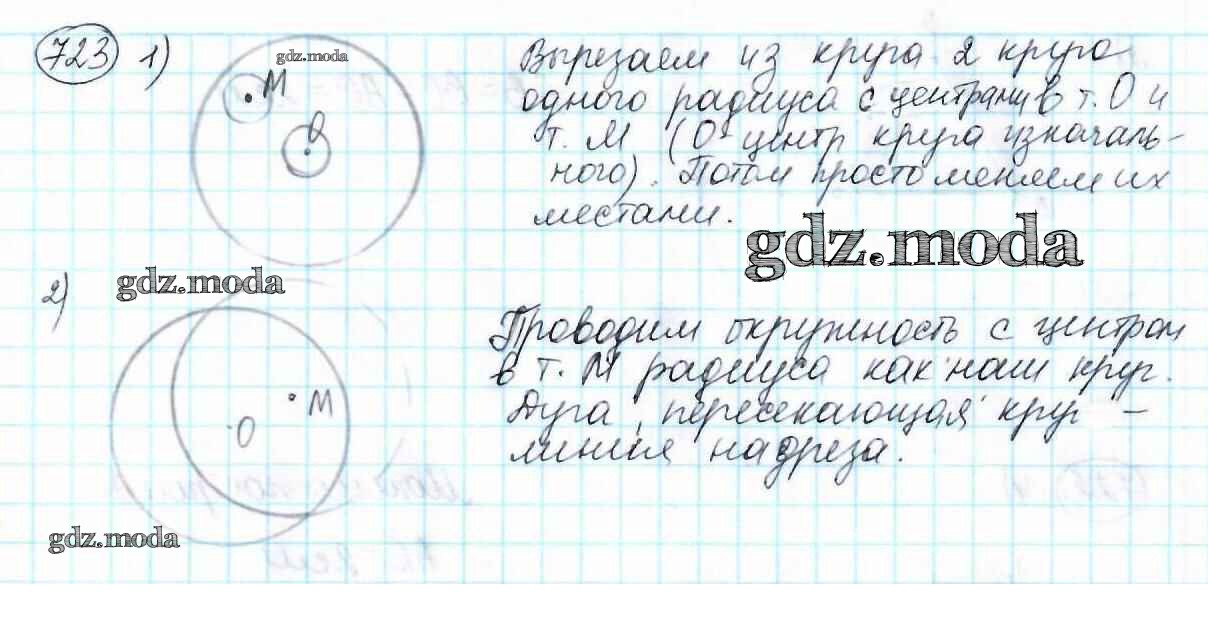 723 1)
gdz.moda
М
О
Вырезаем из круга 2 круга
одного радиуса с центрами в т. О и
т. М (О - центр круга изначаль-
ного). Потом просто меняем их
местами.
gdz.moda
2)
gdz.moda
М
О
Проводим окружность с центром
в т. М радиуса как наш круг.
Дуга, пересекающая круг -
линия надреза.
gdz.moda